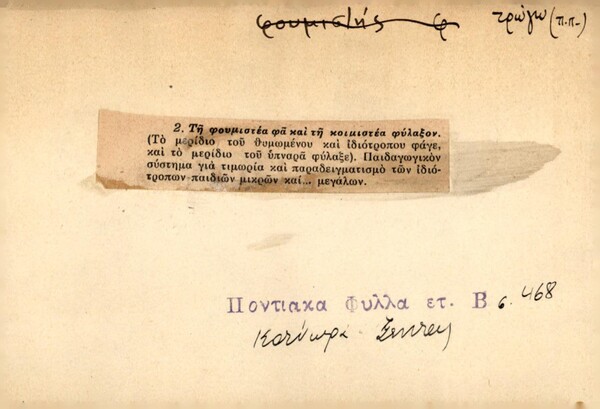 φουμιστής φ τρώγω (π.π.)
2. Τῆ φουμιστέα φᾶ καὶ τῆ κοιμιστέα φύλαξον.
(Τὸ μερίδιο τοῦ θυμωμένου καὶ ἰδιότροπου φάγε,
καὶ τὸ μερίδιο τοῦ ὑπναρᾶ φύλαξε). Παιδαγωγικὸν
σύστημα γιὰ τιμωρία καὶ παραδειγματισμὸ τῶν ἰδιό-
τροπων παιδιῶν μικρῶν καί... μεγάλων.
Ποντιακα Φυλλα ετ. Β σ. 468